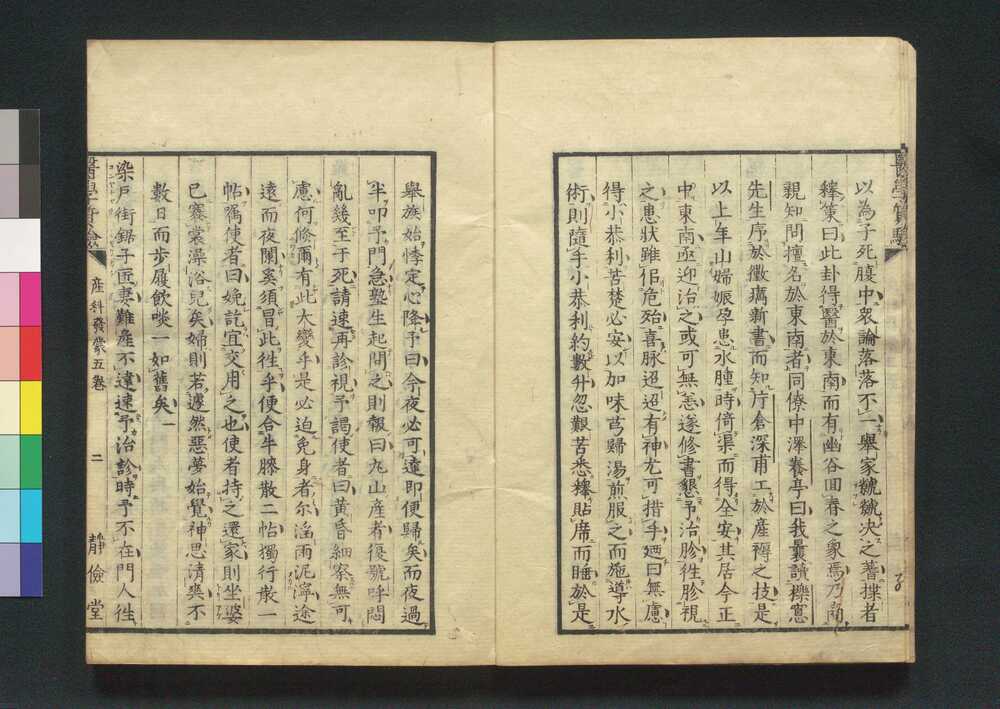 以為子死腹中衆論落落不一擧家虩虩决之蓍揲者
釋策曰此卦得醫於東南而有幽谷回春之象焉乃
親知問擅名於東南者同僚中澤養亭曰我曩讀櫟窓
先生序於黴癘新書而知片倉深甫工於産褥之技是
以上年山婦娠孕患水腫時倚渠而得全安其居今正
中東南亟迎治之或可無恙遂修書懇予治胗徃胗視
之患狀雖佀危殆喜脉迢迢有神尤可措手廼曰無慮
得小恭利苦楚必安以加味芎歸湯煎服之而施導水
術則隨手小恭利約數升忽艱苦悉釋貼席而睡於是
醫學實驗
擧族始悸定心降予曰今夜必可達即便歸矣而夜過
半叩予門急塾生起問之則報曰丸山産者復號呼悶
亂幾至于死請速再診視予謁使者曰黄昏細察無可
慮何倏爾有此大變乎是必迫免身者尔滔雨泥濘途
遠而夜闌奚須冒此徃乎便合牛膝散二帖獨行散一
帖寫使者曰娩訖宜交用之也使者持之還家則坐婆
已褰裳澡浴兒矣婦則若遽然惡夢始覺神思清爽不
數日而步履飲啖一如舊矣
染戸街鋸子匠妻難産不達速予治診時予不在門人徃
産科發蒙五卷
二
靜儉堂